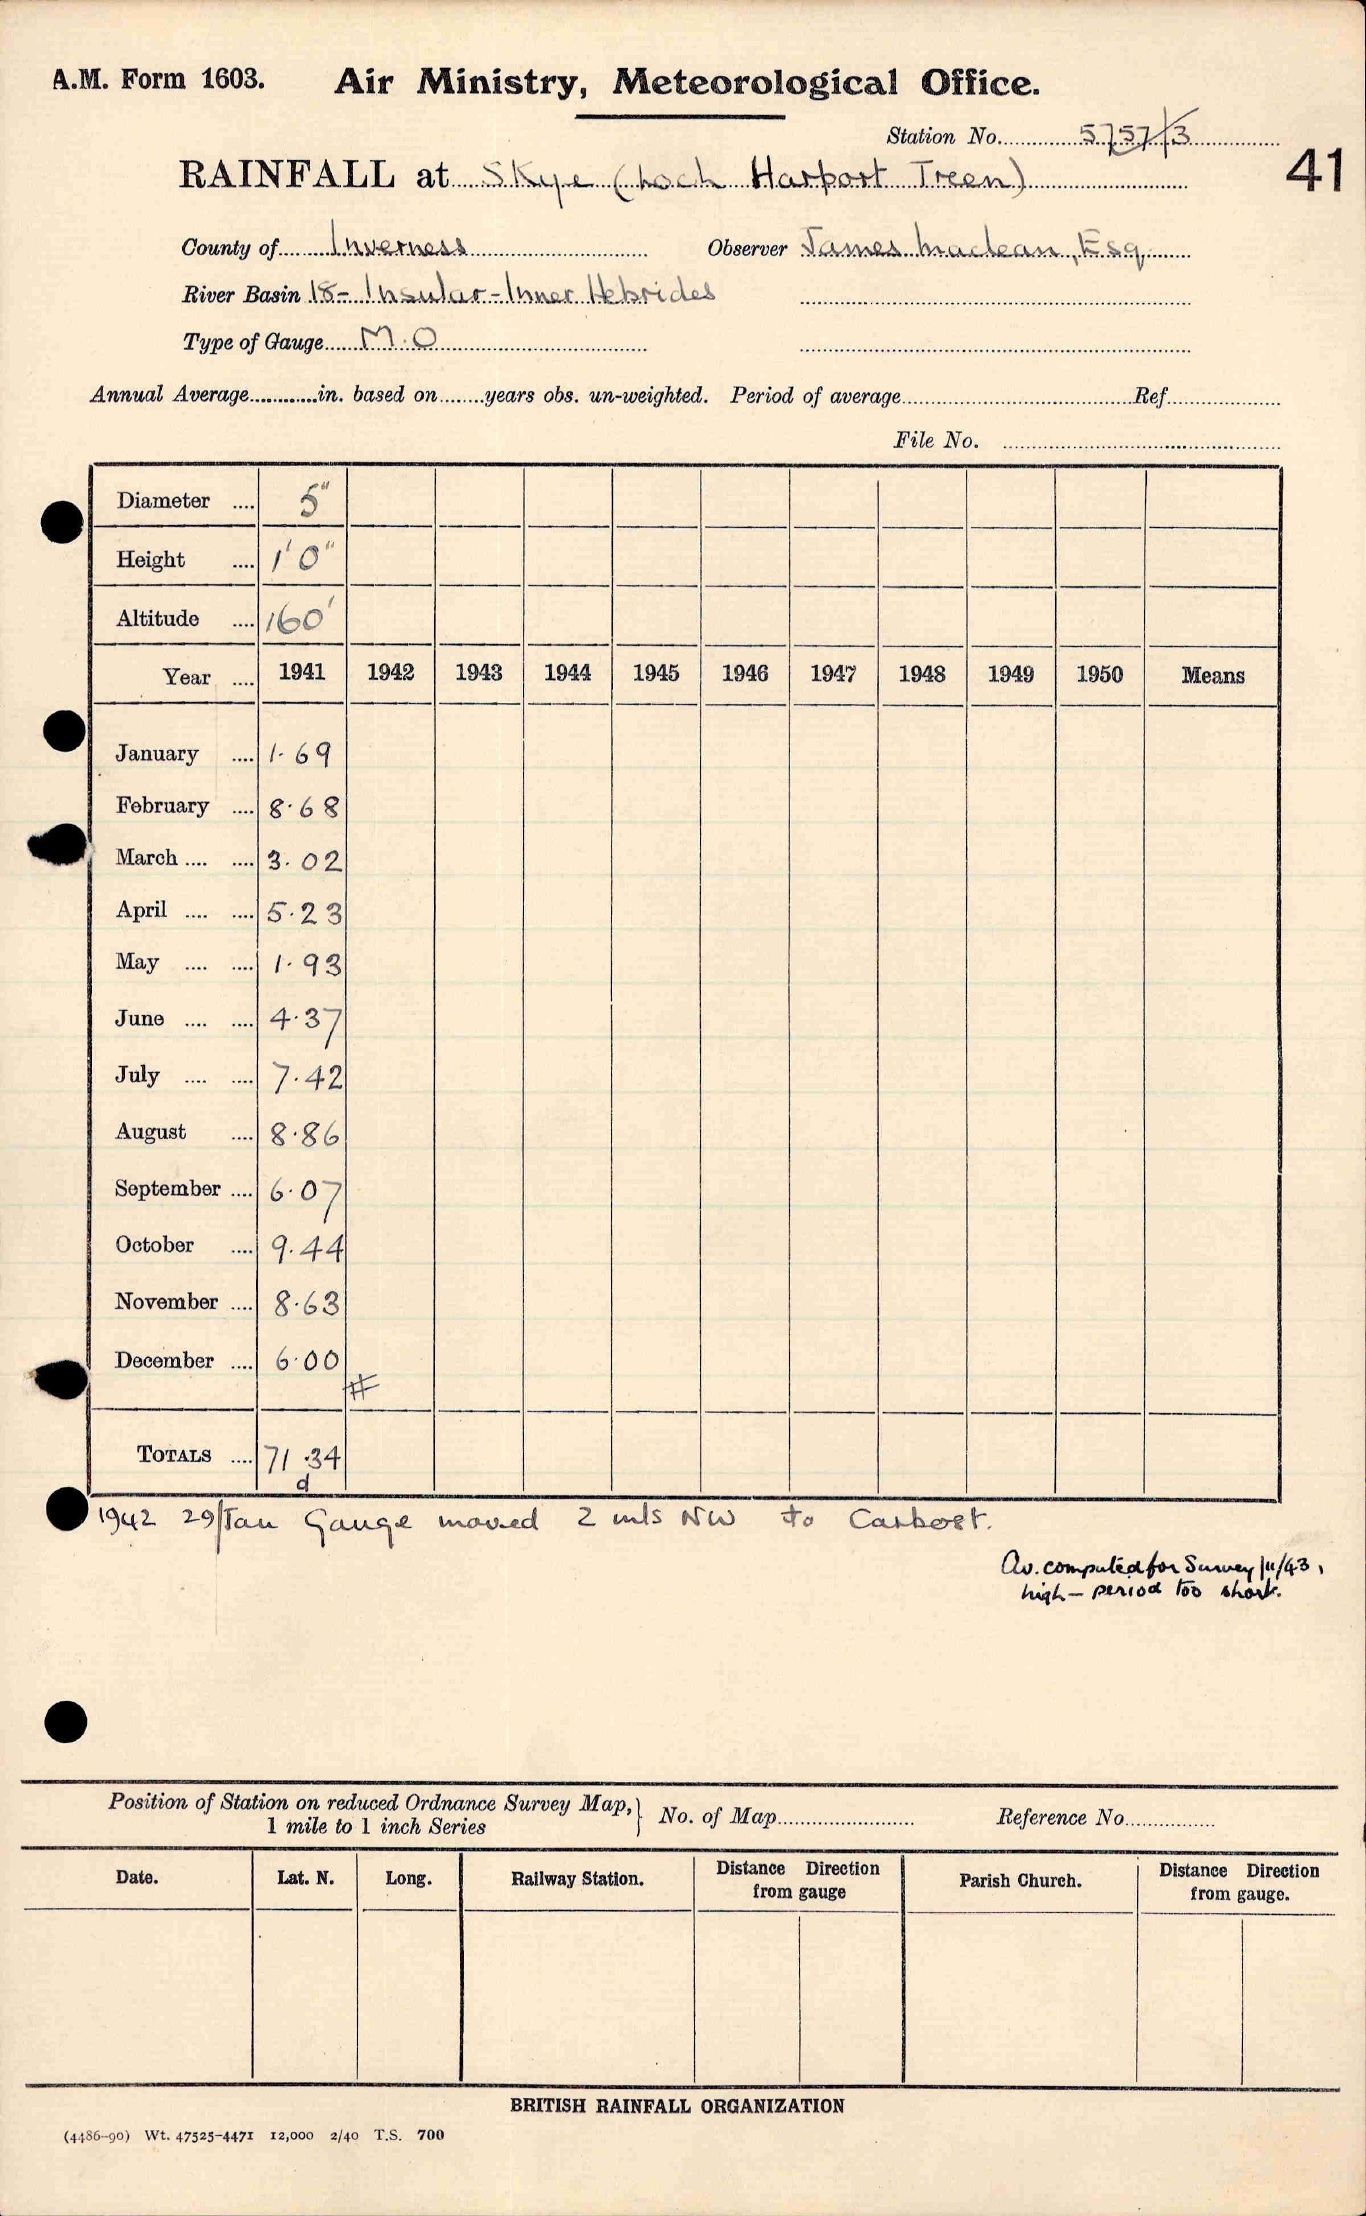 A.M. Form 1603. Air Ministry, Meteorological Office.
Station No. 5757/3
41
RAINFALL at Skye (Loch Harport Treen)
County of Inverness Observer James Maclean, Esq.
River Basin 18- Insular-Inner Hebrides
Type of Gauge M.O
Annual Average in. based on years obs. un-weighted. Period of average Ref.
File No.
Diameter 5"
Height 1'0"
Altitude 160'
Year 1941 1942 1943 1944 1945 1946 1947 1948 1949 1950 Means
January 1.69
February 8.68
March 3.02
April 5.23
May 1.93
June 4.37
July 7.42
August 8.86
September 6.07
October 9.44
November 8.63
December 6.00
#
TOTALS 71.34
d
1942 29/Jan Gauge moved 2 mls NW to Carbost.
Av. computed for Survey 11/43,
high - period too short.
Position of Station on reduced Ordnance Survey Map,} No. of Map Reference No.
1 mile to 1 inch Series
Date. Lat. N. Long. Railway Station. Distance Direction from gauge Parish Church. Distance Direction from gauge.
BRITISH RAINFALL ORGANIZATION
(4486-90) Wt. 47525-4471 12,000 2/40 T.S. 700